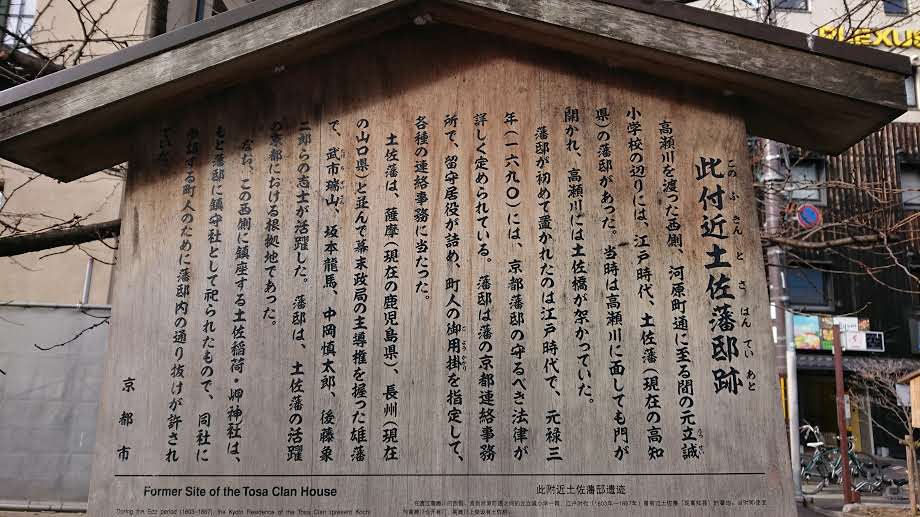 此付近土佐藩邸跡
このふきんとさはんていあと
高瀬川を渡った西側、河原町通に至る間の元立誠
りっせい
小学校の辺りには、江戸時代、土佐藩（現在の高知
県）の藩邸があった。当時は高瀬川に面しても門が
開かれ、高瀬川には土佐橋が架かっていた。
藩邸が初めて置かれたのは江戸時代で、元禄三
年（一六九〇）には、京都藩邸の守るべき法律が
詳しく定められている。藩邸は藩の京都連絡事務
所で、留守居役が詰め、町人の御用掛を指定して、
ごようがかり
各種の連絡事務に当たった。
土佐藩は、薩摩（現在の鹿児島県）、長州（現在
の山口県）と並んで幕末政局の主導権を握った雄藩
で、武市瑞山、坂本龍馬、中岡慎太郎、後藤象
二郎らの志士が活躍した。藩邸は、土佐藩の活躍
の京都における根拠地であった。
なお、この西側に鎮座する土佐稲荷・岬神社は、
もと藩邸に鎮守社として祀られたもので、同社に
する町人のために藩邸内の通り抜けが許され
ていた。
京都市
Former Site of the Tosa Clan House
During the Edo period (1603-1867), the Kyoto Residence of the Tosa Clan (present Kochi
此附近土佐藩邸遗迹
PLEXUS